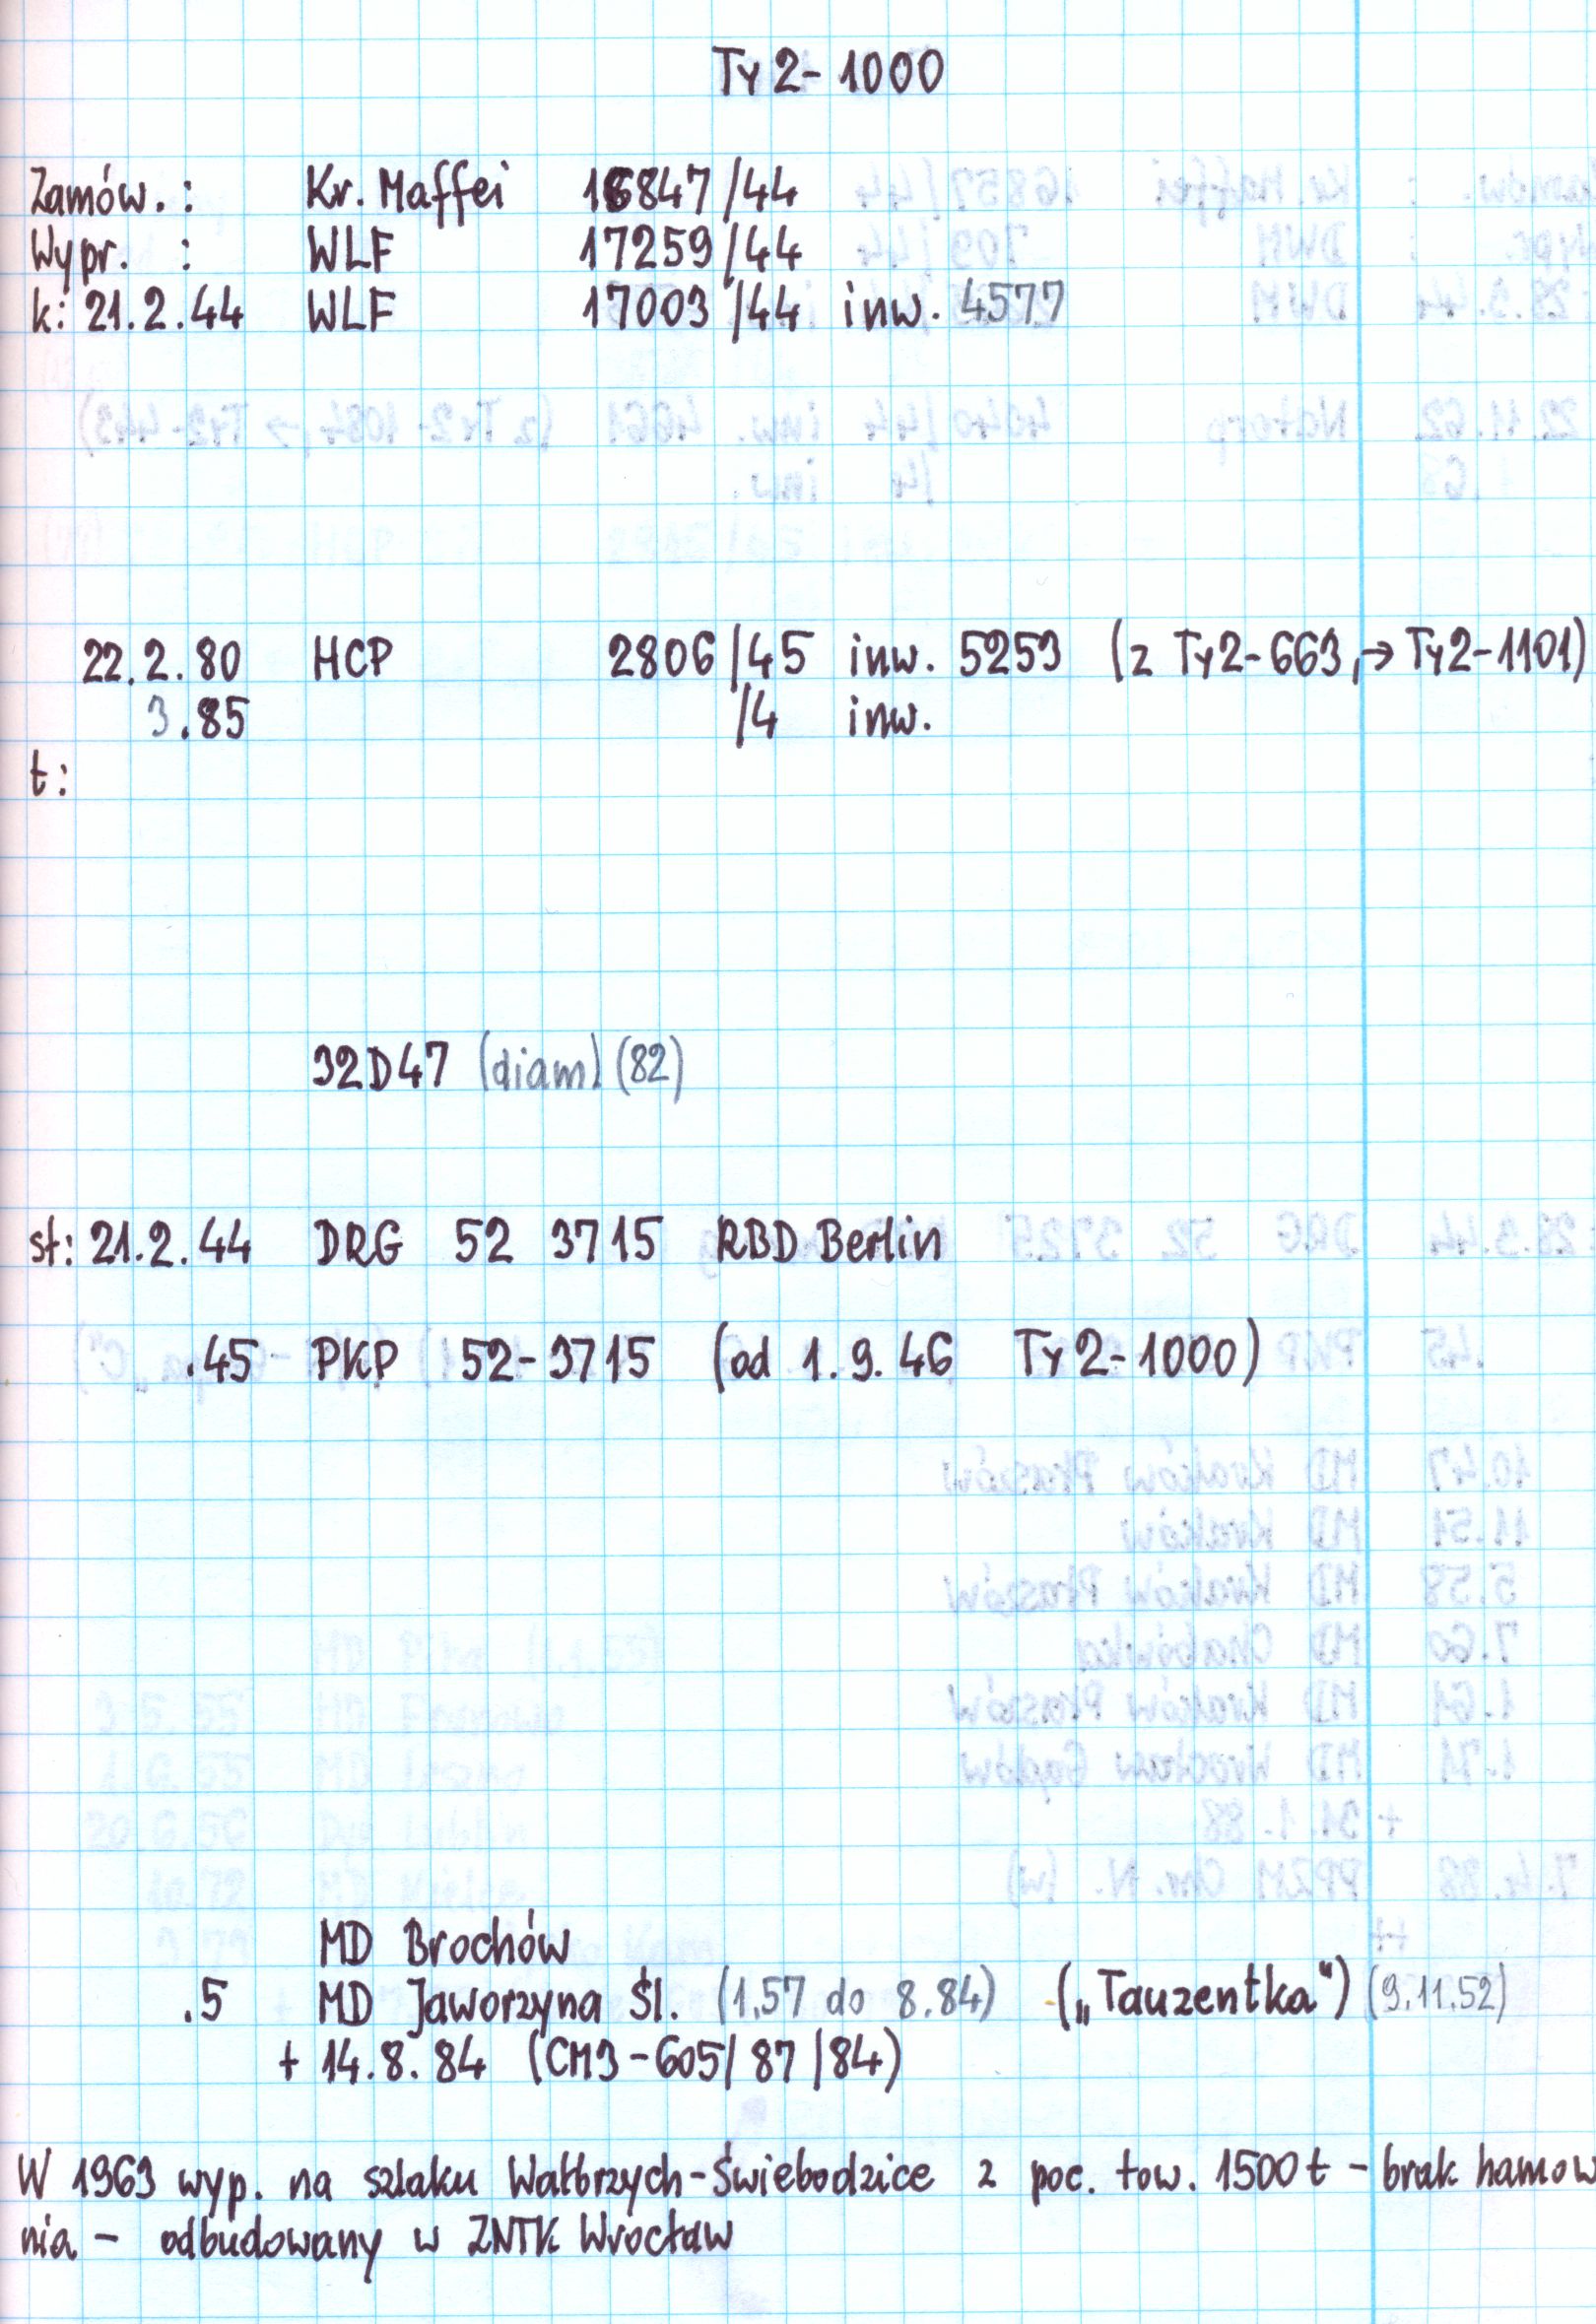 Ty2-1000
Zamów.: Kr. Maffei 16847/44
Wypr. : WLF 17259/44
k: 21.2.44 WLF 17003/44 inw. 4577
22.2.80 HCP 2806/45 inw. 5253 (z Ty2-663, → Ty2-1101)
3.85 /4 inw.
t:
32D47 (diam) (82)
st: 21.2.44 DRG 52 3715 RBD Berlin
.45 PKP 52-3715 (od 1.9.46 Ty2-1000)
MD Brochów
.5 MD Jaworzyna Śl. (1.57 do 8.84) („Tauzentka") (9.11.52)
+ 14.8.84 (CM3-605/87/84)
W 1963 wyp. na szlaku Wałbrzych-Świebodzice z poc. tow. 1500t - brak hamow
nia - odbudowany w ZNTK Wrocław